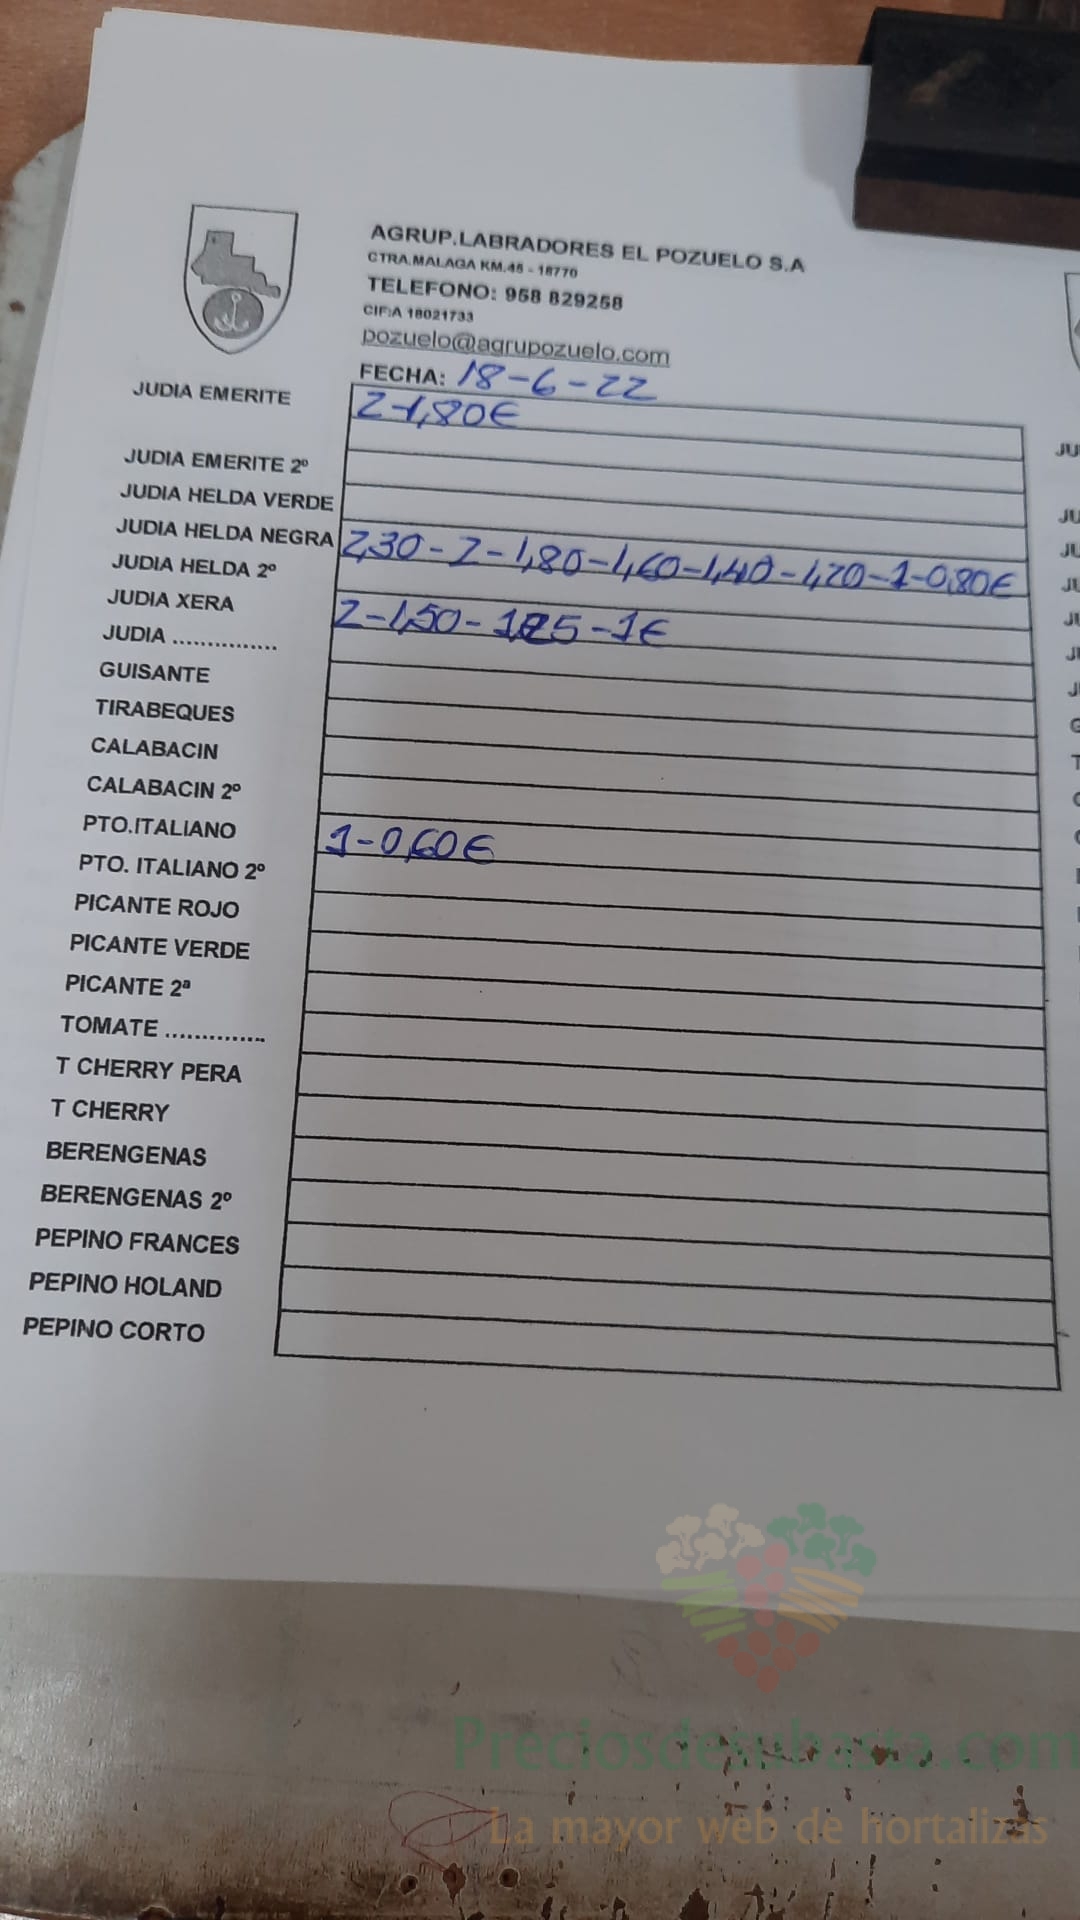 AGRUP.LABRADORES EL POZUELO S.A
CTRA.MALAGA KM.45 - 18770
TELEFONO: 958 829258
CIF:A 18021733
pozuelo@agrupozuelo.com
FECHA: 18-6-22
JUDIA EMERITE 2-1,80€
JUDIA EMERITE 2º
JUDIA HELDA VERDE
JUDIA HELDA NEGRA 2,30-2-1,80-1,60-1,40-1,20-1-0,80€
JUDIA HELDA 2º
JUDIA XERA 2-1,50-1,25-1€
JUDIA ...............
GUISANTE
TIRABEQUES
CALABACIN
CALABACIN 2º
PTO.ITALIANO 1-0,60€
PTO. ITALIANO 2º
PICANTE ROJO
PICANTE VERDE
PICANTE 2ª
TOMATE ..............
T CHERRY PERA
T CHERRY
BERENGENAS
BERENGENAS 2º
PEPINO FRANCES
PEPINO HOLAND
PEPINO CORTO
Preciosdesubasta.com
La mayor web de hortalizas